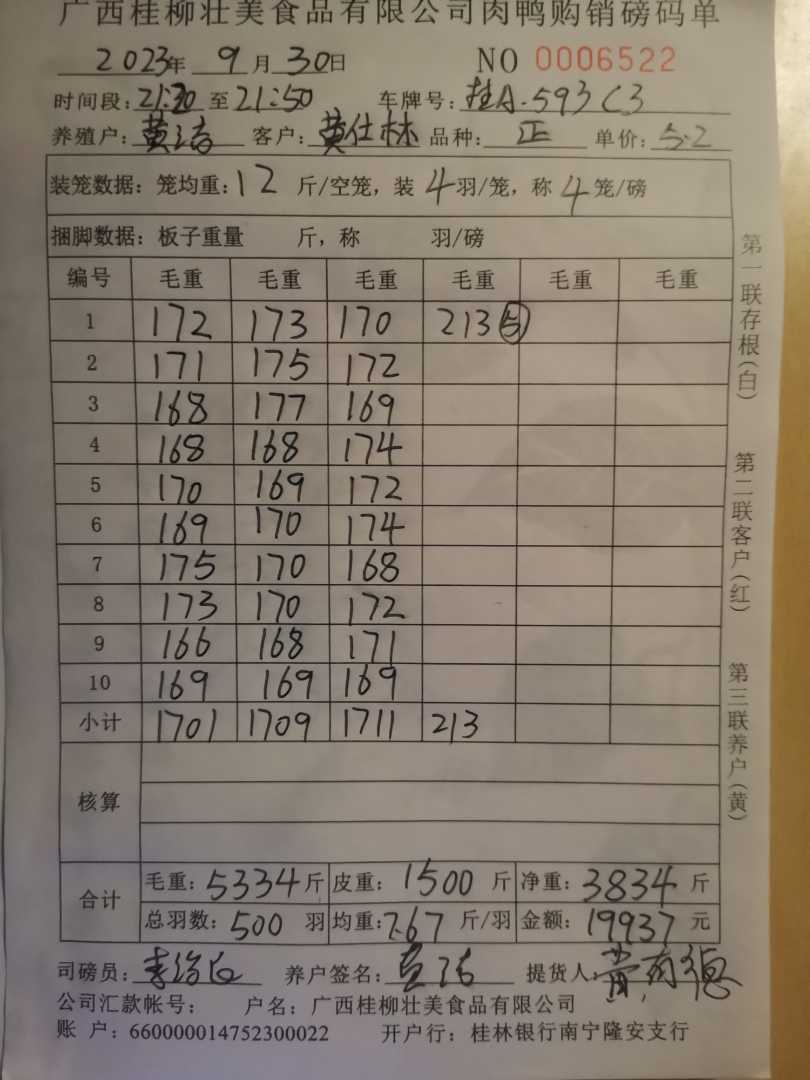 广西桂柳壮美食品有限公司肉鸭购销磅码单
2023年 9月30日 NO 0006522
时间段:21:20至21:50 车牌号:桂A·593C3
养殖户:黄洁 客户:黄仕林 品种:正 单价:5.2
装笼数据:笼均重:12斤/空笼,装4羽/笼,称4笼/磅
捆脚数据:板子重量 斤,称 羽/磅
编号 毛重 毛重 毛重 毛重 毛重 毛重
1 172 173 170 213⑤
2 171 175 172
3 168 177 169
4 168 168 174
5 170 169 172
6 169 170 174
7 175 170 168
8 173 170 172
9 166 168 171
10 169 169 169
小计 1701 1709 1711 213
核算
合计 毛重:5334斤 皮重:1500斤 净重:3834斤
总羽数:500羽 均重:7.67斤/羽 金额:19937元
司磅员: 养户签名:黄洁 提货人:
公司汇款帐号: 户名:广西桂柳壮美食品有限公司
账 户:660000014752300022 开户行:桂林银行南宁隆安支行
第一联存根(白) 第二联客户(红) 第三联养户(黄)